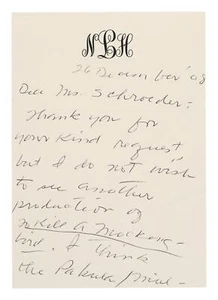 NBH
26 December '08
Dear Ms. Schroeder:
Thank you for
your kind request
but I do not wish
to see another
production of
To Kill a Mocking-
bird. I think
the Pakula/Mul-